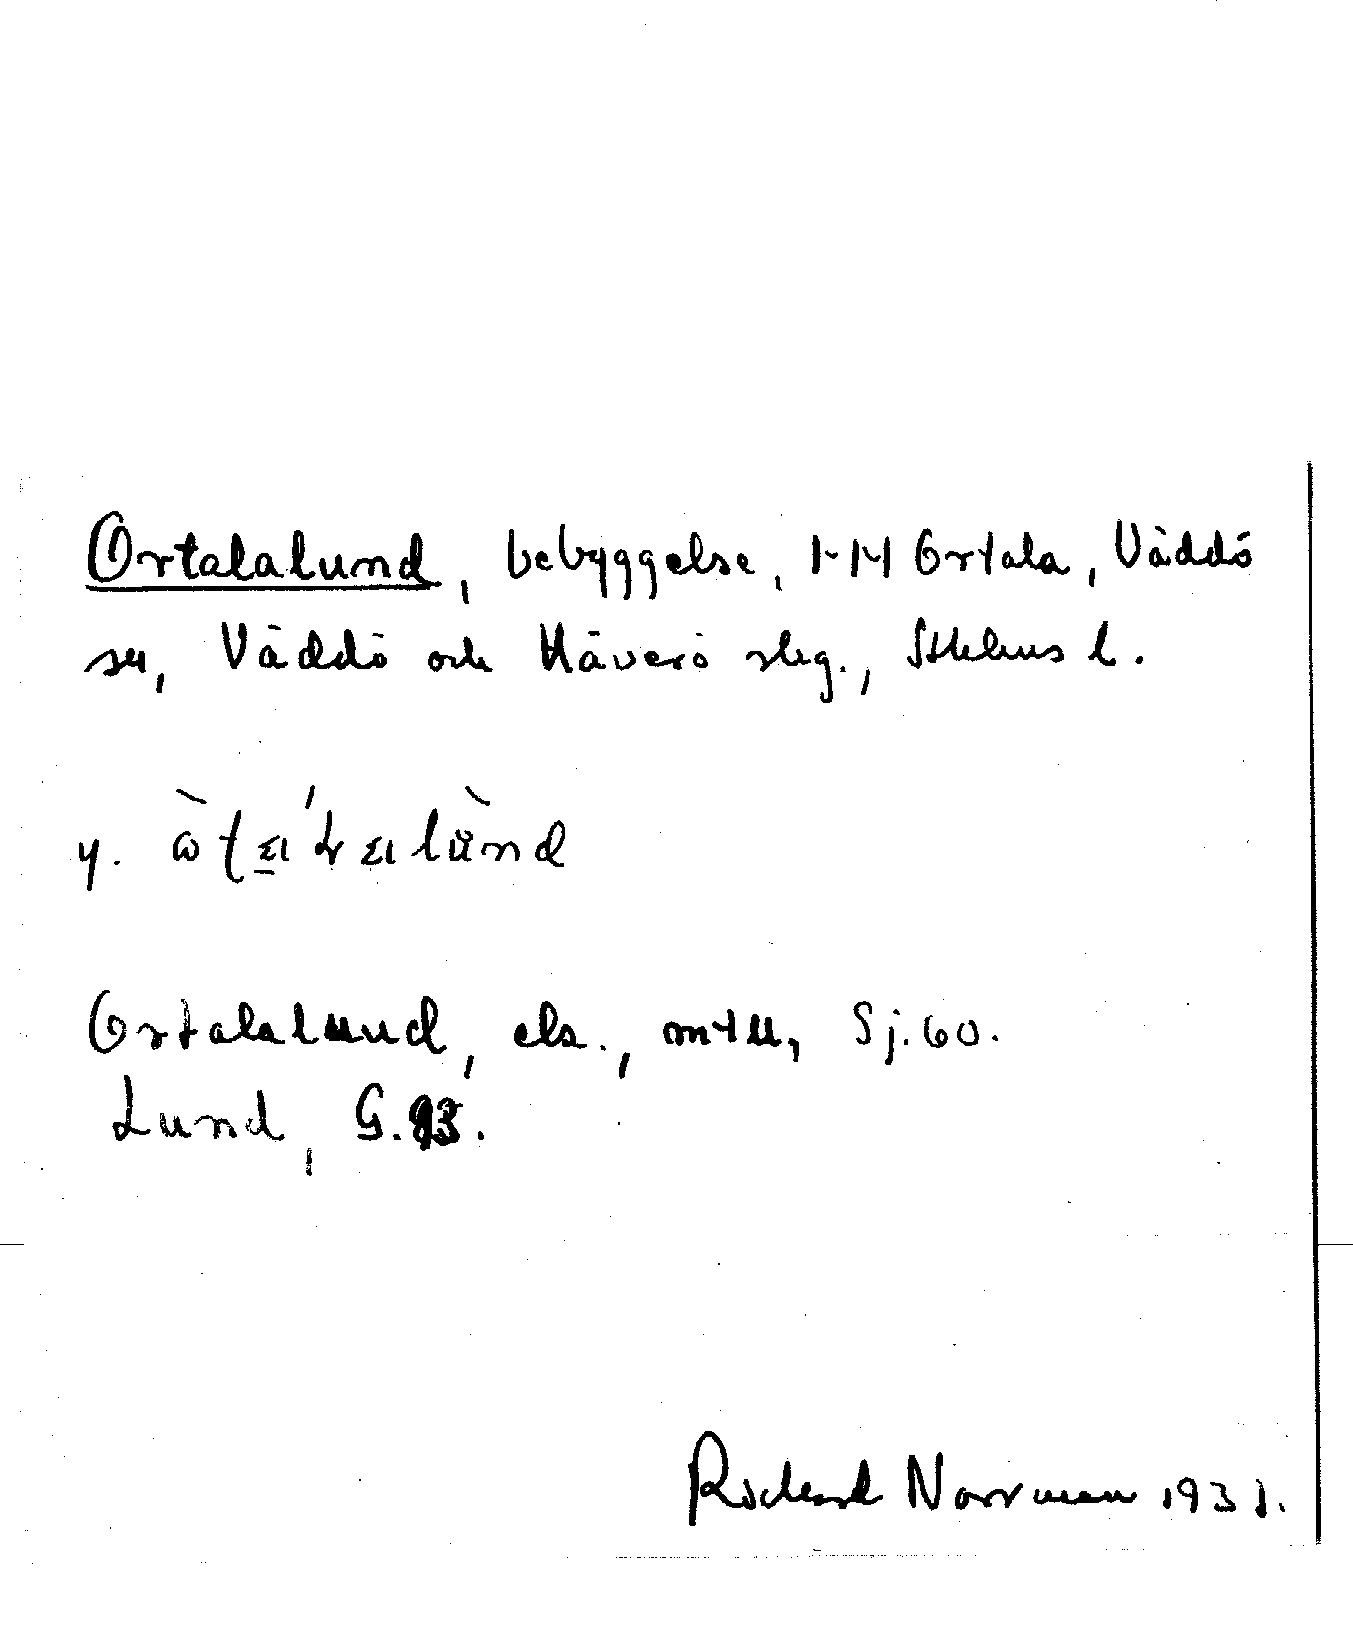 Ortalalund, bebyggelse, 1-14 Ortala, Väddö
sn, Väddö och Häverö skg., Sthlms l.
y.
Ortalalund, els., mtu, Sj. 60.
Lund, G. 93.
Richard Norrman 1931.